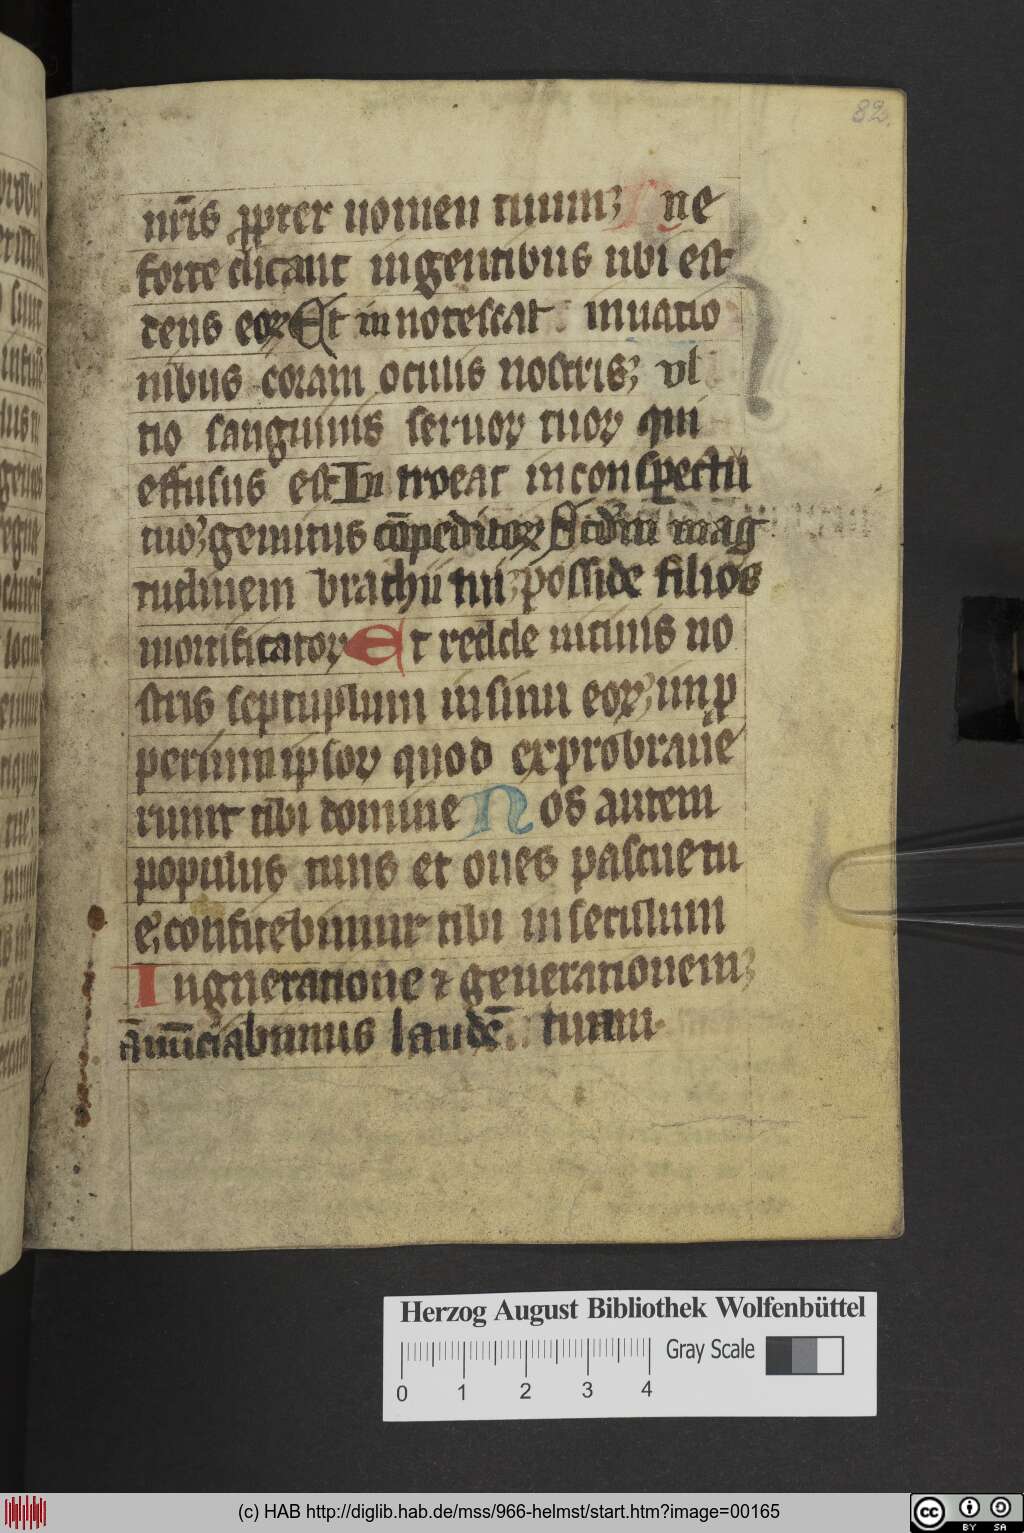 82.
nr̄is ꝓpter nomen tuum; ne
forte dicant in gentibus ubi est
deus eoꝝ Et in notescat in natio
nibus coram oculis nostris; vl
tio sanguinis seruoꝝ tuoꝝ qui
effusus est In troeat in conspectu
tuo; gemitus co̅peditoꝝ mag
tudinem brachii tui; posside filios
mortificatoꝝ Et redde uicinis no
stris septuplum in sinu eoꝝ; imp
perium ipsoꝝ quod exprobraue
runt tibi domine Nos autem
populus tuus et oues pascue tu
e; confitebimur tibi in seculum
In gneratione ⁊ generationem;
an̄u̅ciabimus laude̅ tuam.
Herzog August Bibliothek Wolfenbüttel
Gray Scale
0 1 2 3 4
(c) HAB http://diglib.hab.de/mss/966-helmst/start.htm?image=00165
cc BY SA